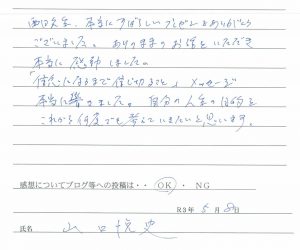 西田先生、本当にすばらしいセミナーをありがとう
ございました。ありのままのお話をいただき
本当に感動しました。
「信念になるまで信じ切ること」メッセージ
本当に響きました。自分の人生の目的を
これから何度でも考えていきたいと思います。
感想についてブログ等への投稿は・・ OK ・ NG
R3年 5月 8日
氏名 山口悦史